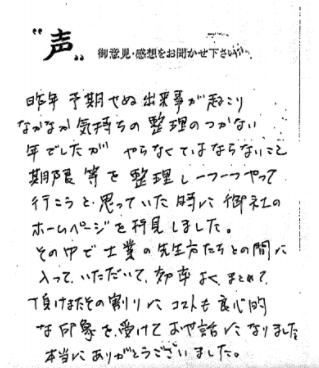 "声"
御意見・感想をお聞かせ下さい。
昨年 予期せぬ出来事が起こり
なかなか気持ちの整理のつかない
年でしたが やらなくてはならないこと
期限等を整理し一つ一つやって
行こうと思っていた時に御社の
ホームページを拝見しました。
その中で士業の先生方たちとの間に
入って、いただいて、効率よくまとめて
頂けまたその割りにコストも良心的
な印象を受けてお世話になりました
本当にありがとうございました。